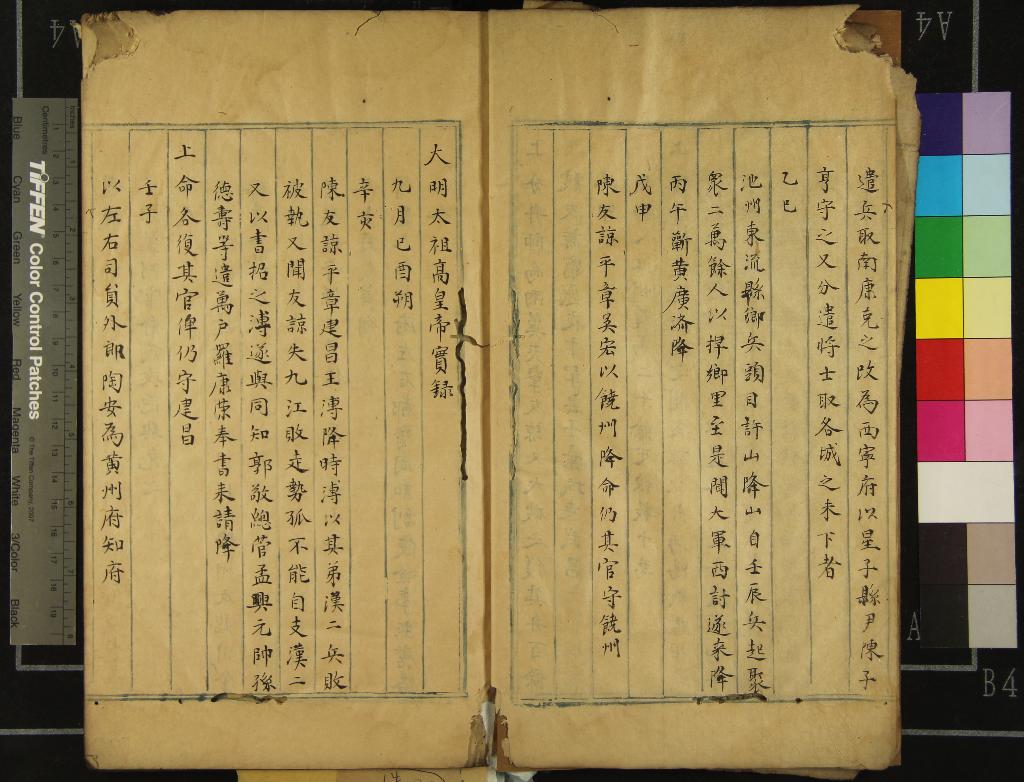 遣兵取南康克之改為西寧府以星子縣尹陳子
亨守之又分遣將士取各城之未下者
乙巳
池州東流縣鄉兵頭目許山降山自壬辰兵起聚
衆二萬餘人以捍鄉里至是聞大軍西討遂來降
丙午蘄黃廣濟降
戊申
陳友諒平章吳宏以饒州降命仍其官守饒州
大明太祖高皇帝實録
九月己酉朔
辛亥
陳友諒平章建昌王溥降時溥以其弟漢二兵敗
被執又聞友諒失九江敗走勢孤不能自支漢二
又以書招之溥遂與同知郭敬總管孟興元帥孫
德壽等遣萬户羅康陳奉書來請降
上命各復其官俾仍守建昌
壬子
以左右司員外郎陶安為黃州府知府
A4
A4
A
B4
Inches
Centimetres
TIFFEN Color Control Patches
© The Tiffen Company, 2007
Blue
Cyan
Green
Yellow
Red
Magenta
White
3/Color
Black